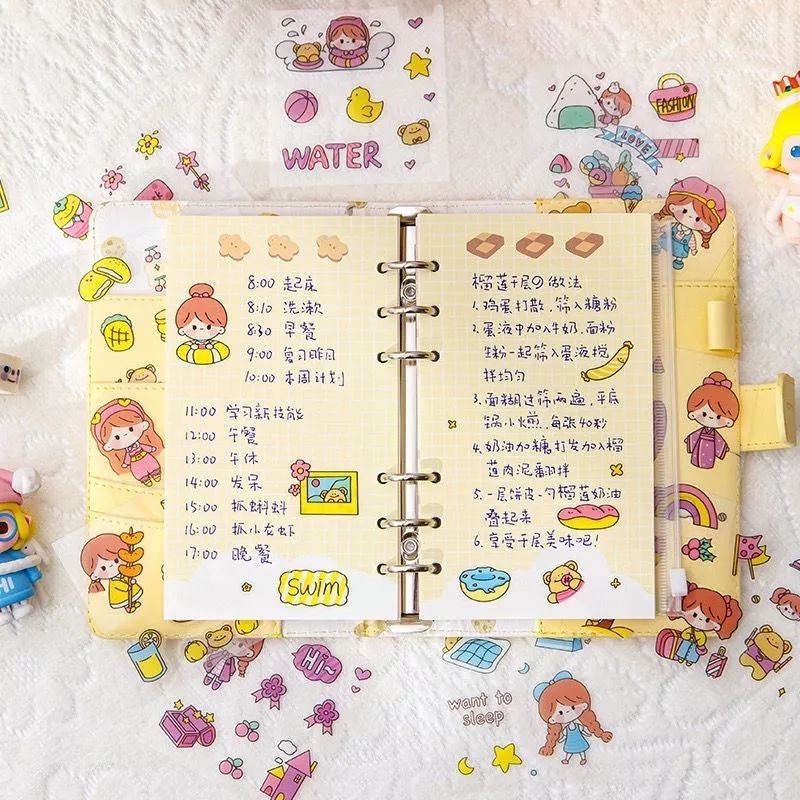 WATER
FASHION
LOVE
8:00 起床
8:10 洗漱
8:30 早餐
9:00 复习昨日
10:00 本周计划
11:00 学习新技能
12:00 午餐
13:00 午休
14:00 发呆
15:00 抓蝌蚪
16:00 抓小龙虾
17:00 晚餐
swim
榴莲千层の做法
1. 鸡蛋打散,筛入糖粉
2. 蛋液中加入牛奶,面粉
生粉一起筛入蛋液搅
拌均匀
3. 面糊过筛两遍,平底
锅小火煎,每张40秒
4. 奶油加糖打发加入榴
莲肉泥翻拌
5. 一层饼皮一勺榴莲奶油
叠起来
6. 享受千层美味吧!
HI
Hi~
want to
sleep